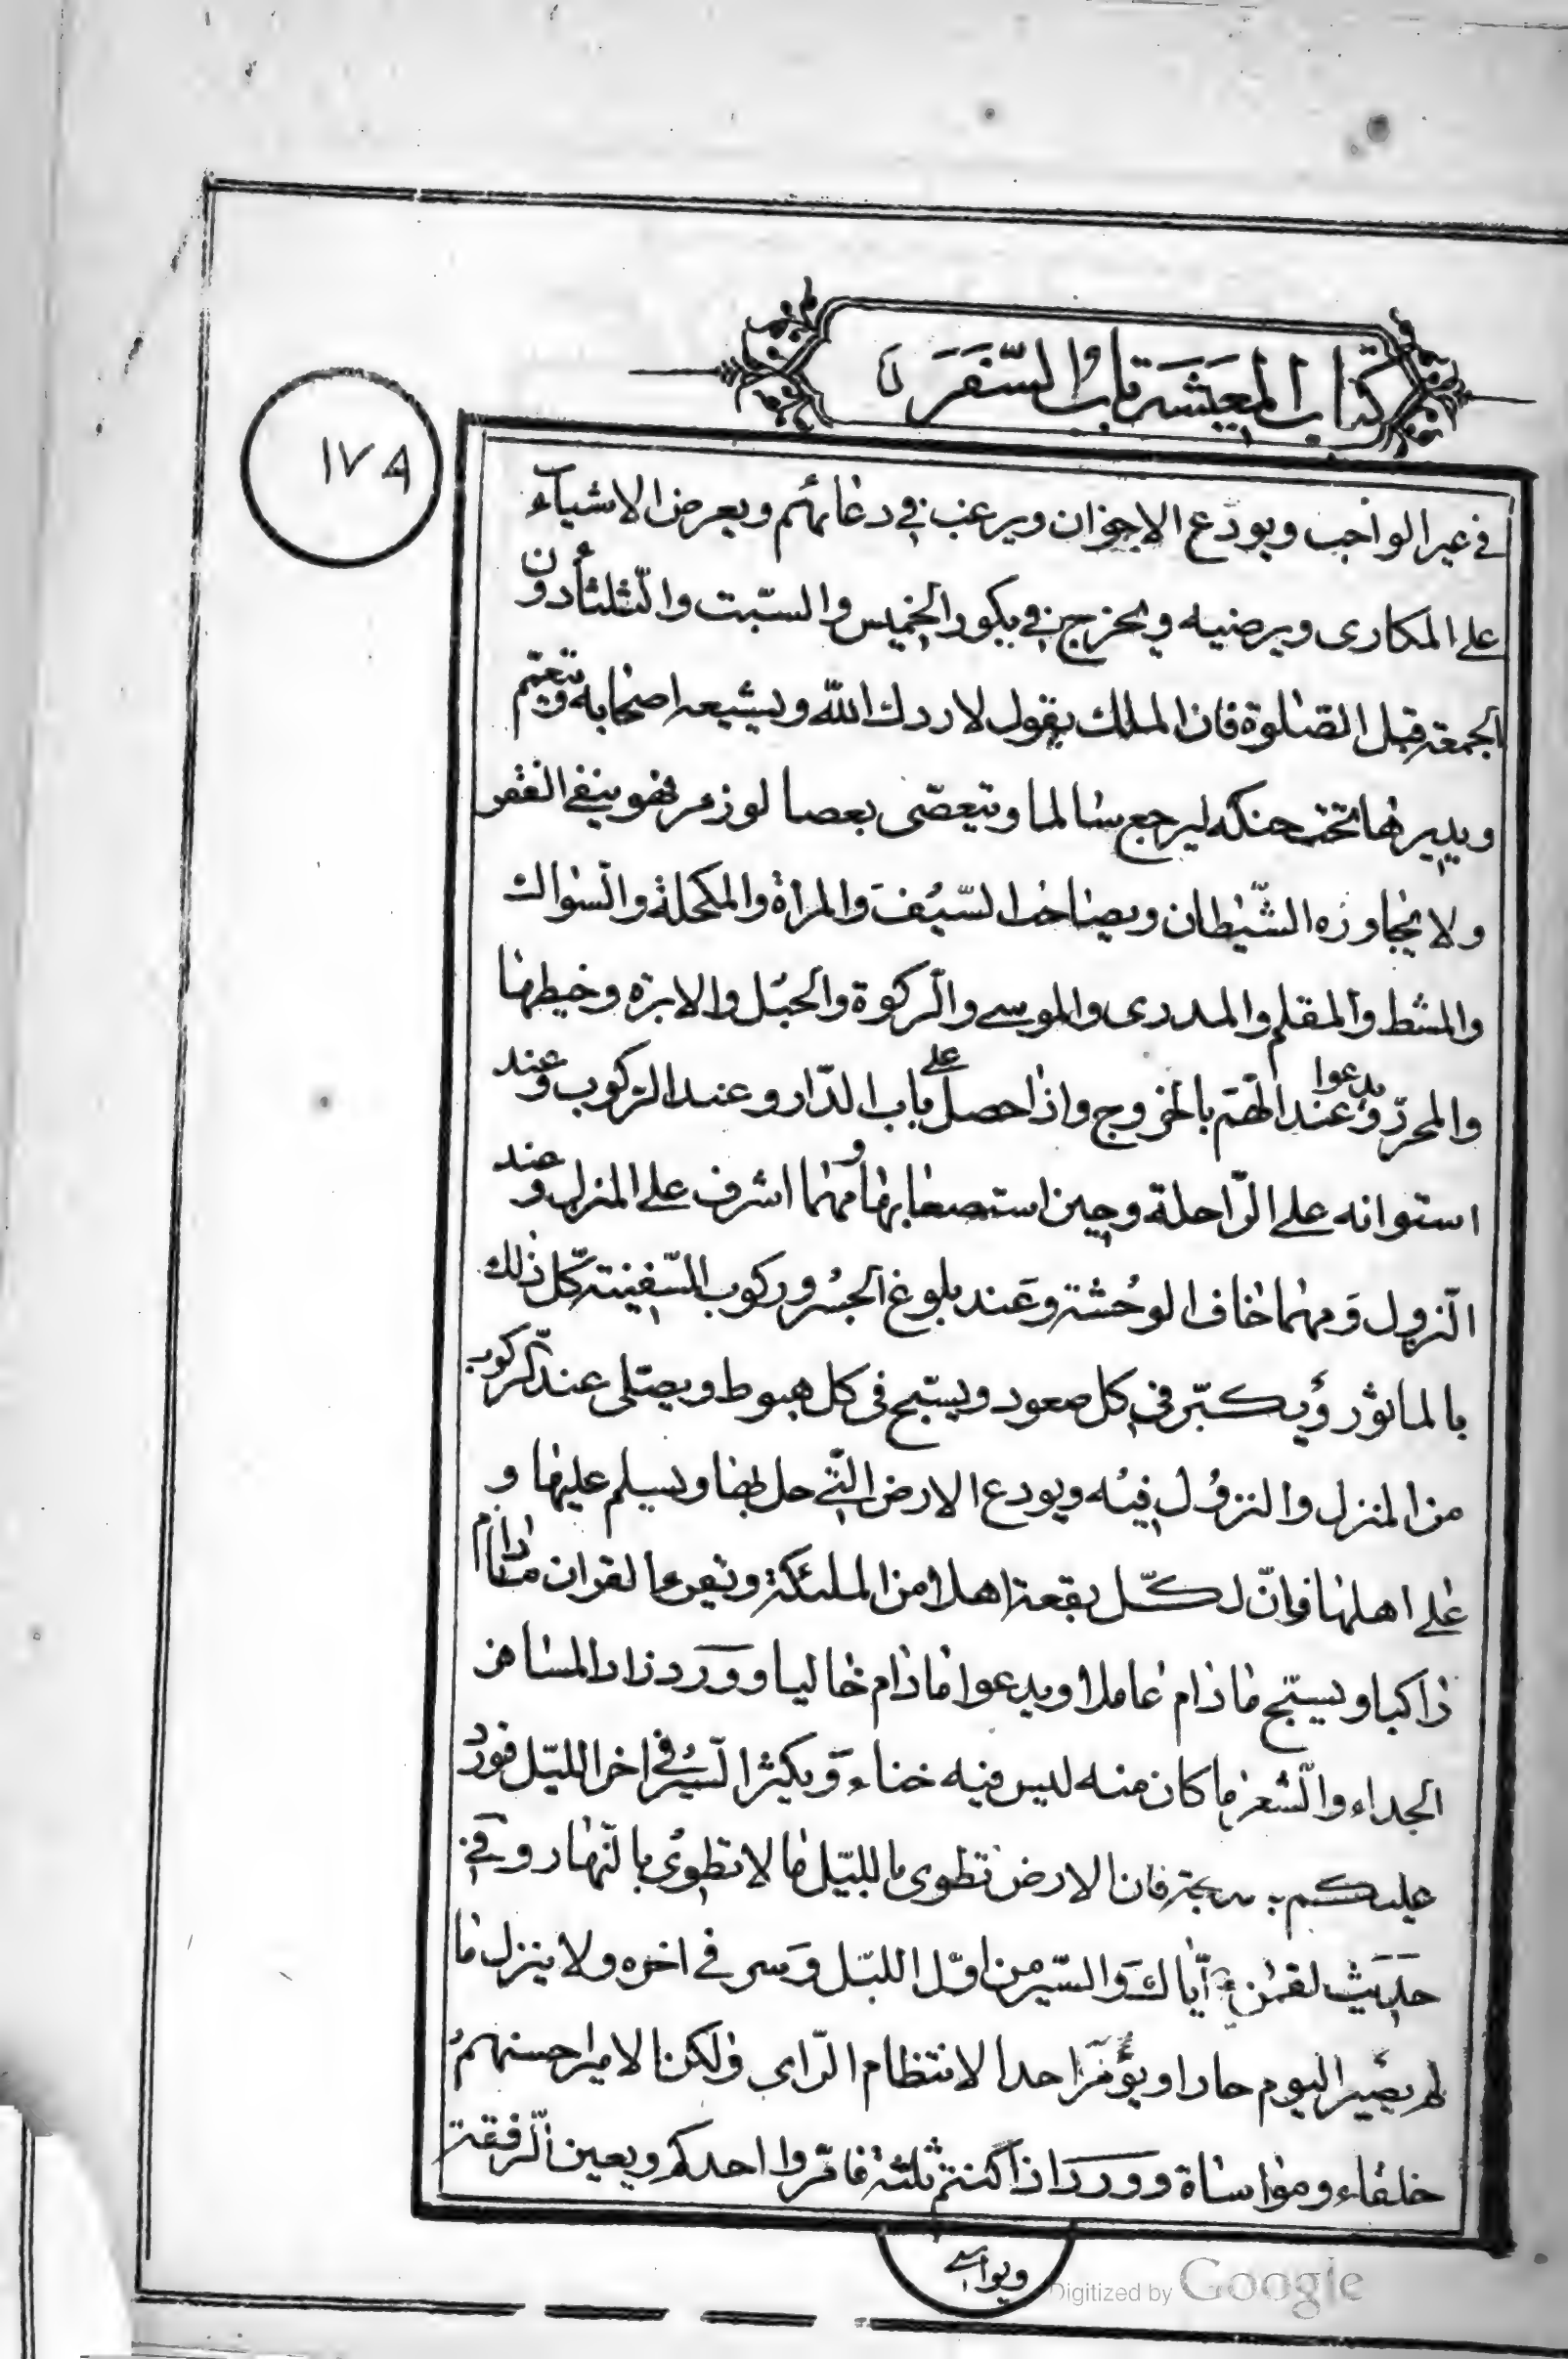 كتاب المعيشة باب السفر
١٧٨
في غير الواجب ويودع الاخوان ويرغب في دعائهم ويعرض الاشياء
على المكارى ويرضيه ويخرج في بكور الخميس والسبت والثلثا دون
الجمعة قبل الصلوة فان الملك يقول لا ردك الله ويشيعه اصحابه ويتعمم
ويديرها تحت حنكه ليرجع سالما ويتعصى بعصا لوز مر فهو ينفى الفقر
ولا يجاوره الشيطان ويصاحب السيف والمرأة والمكحلة والسواك
والمشط والمقلم والمدرى والموسى والركوة والحبل والابرة وخيطها
والمحرز ويدعوا عند الهم بالخروج واذا حصل على باب الدار وعند الركوب وعند
استوائه على الراحلة وحين استصعابها ومهما اشرف على المنزل وعند
النزول ومهما خاف الوحشة وعند بلوغ الجسر وركوب السفينة كل ذلك
بالماثور ويكبر في كل صعود ويسبح في كل هبوط ويصلى عند الركوب
من المنزل والنزول فيه ويودع الارض التى حل بها ويسلم عليها و
على اهلها فان لكل بقعة اهلا من الملئكة ويقرء القران مادام
راكبا ويسبح مادام عاملا ويدعوا مادام خاليا وورد زاد المسافر
الحداء والشعر ما كان منه ليس فيه خناء ويكثر السير في اخر الليل فورد
عليكم فان الارض تطوى بالليل ما لا تطوى بالنهار وفي
حديث لقمن اياك والسير من اول الليل وسر في اخره ولا ينزل ما
لم يصير اليوم حارا ويؤمر احدا لانتظام الراى وليكن الامير احسنهم
خلقاء ومواساة وورد اذا كنتم ثلثة فامروا احدكم ويعين الرفقة
ويواسى
Digitized by Google